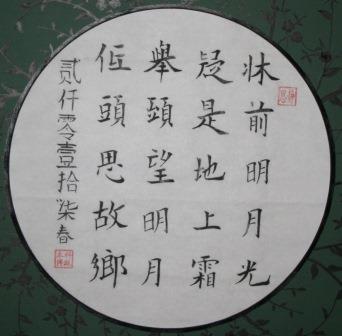 牀前明月光
疑是地上霜
舉頭望明月
低頭思故鄉
贰仟零壹拾柒春